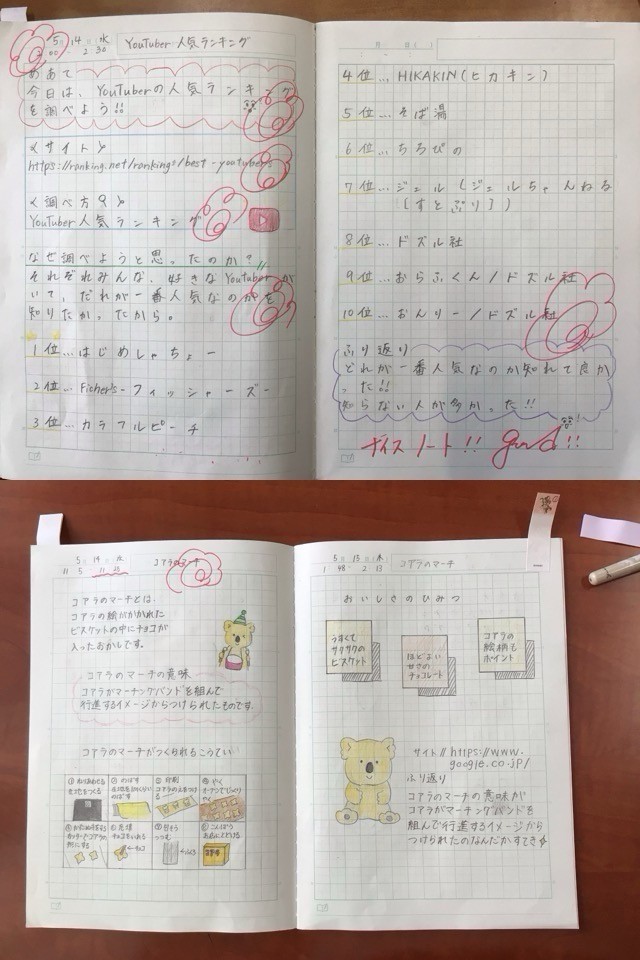 5月 14日 水
YouTuber 人気ランキング
2 30
めあて
今日は、YouTuberの人気ランキング
を調べよう!!
<サイト>
<調べ方>
YouTuber人気ランキング
なぜ調べようと思ったのか?
それぞれみんな、好きなYouTuberが
いて、だれが一番人気なのかを
知りたかったから。
1位…はじめしゃちょー
2位…Ficher's-フィッシャーズ-
3位…カラフルピーチ
4位…HIKAKIN(ヒカキン)
5位…そば湯
6位…ちろぴの
7位…ジェル(ジェルちゃんねる
(すとぷり))
8位…ドズル社
9位…おらふくん/ドズル社
10位…おんりー/ドズル社
ふり返り
どれが一番人気なのか知れて良か
った!!
知らない人が多かった!!
ナイスノート!! good!!
5月 14日 水
コアラのマーチ
コアラのマーチとは、
コアラの絵がかかれた
ビスケットの中にチョコが
入ったおかしです。
コアラのマーチの意味
コアラがマーチングバンドを組んで
行進するイメージからつけられたものです。
コアラのマーチがつくられるこうてい
5月 15日 木
1 48 2 13
コアラのマーチ
おいしさのひみつ
うすくて
サクサクの
ビスケット
ほどよい
甘さの
チョコレート
コアラの
絵柄も
ポイント
サイト//https://www.
google.co.jp/
ふり返り
コアラのマーチの意味が
コアラがマーチングバンドを
組んで行進するイメージから
つけられたのなんかすてき